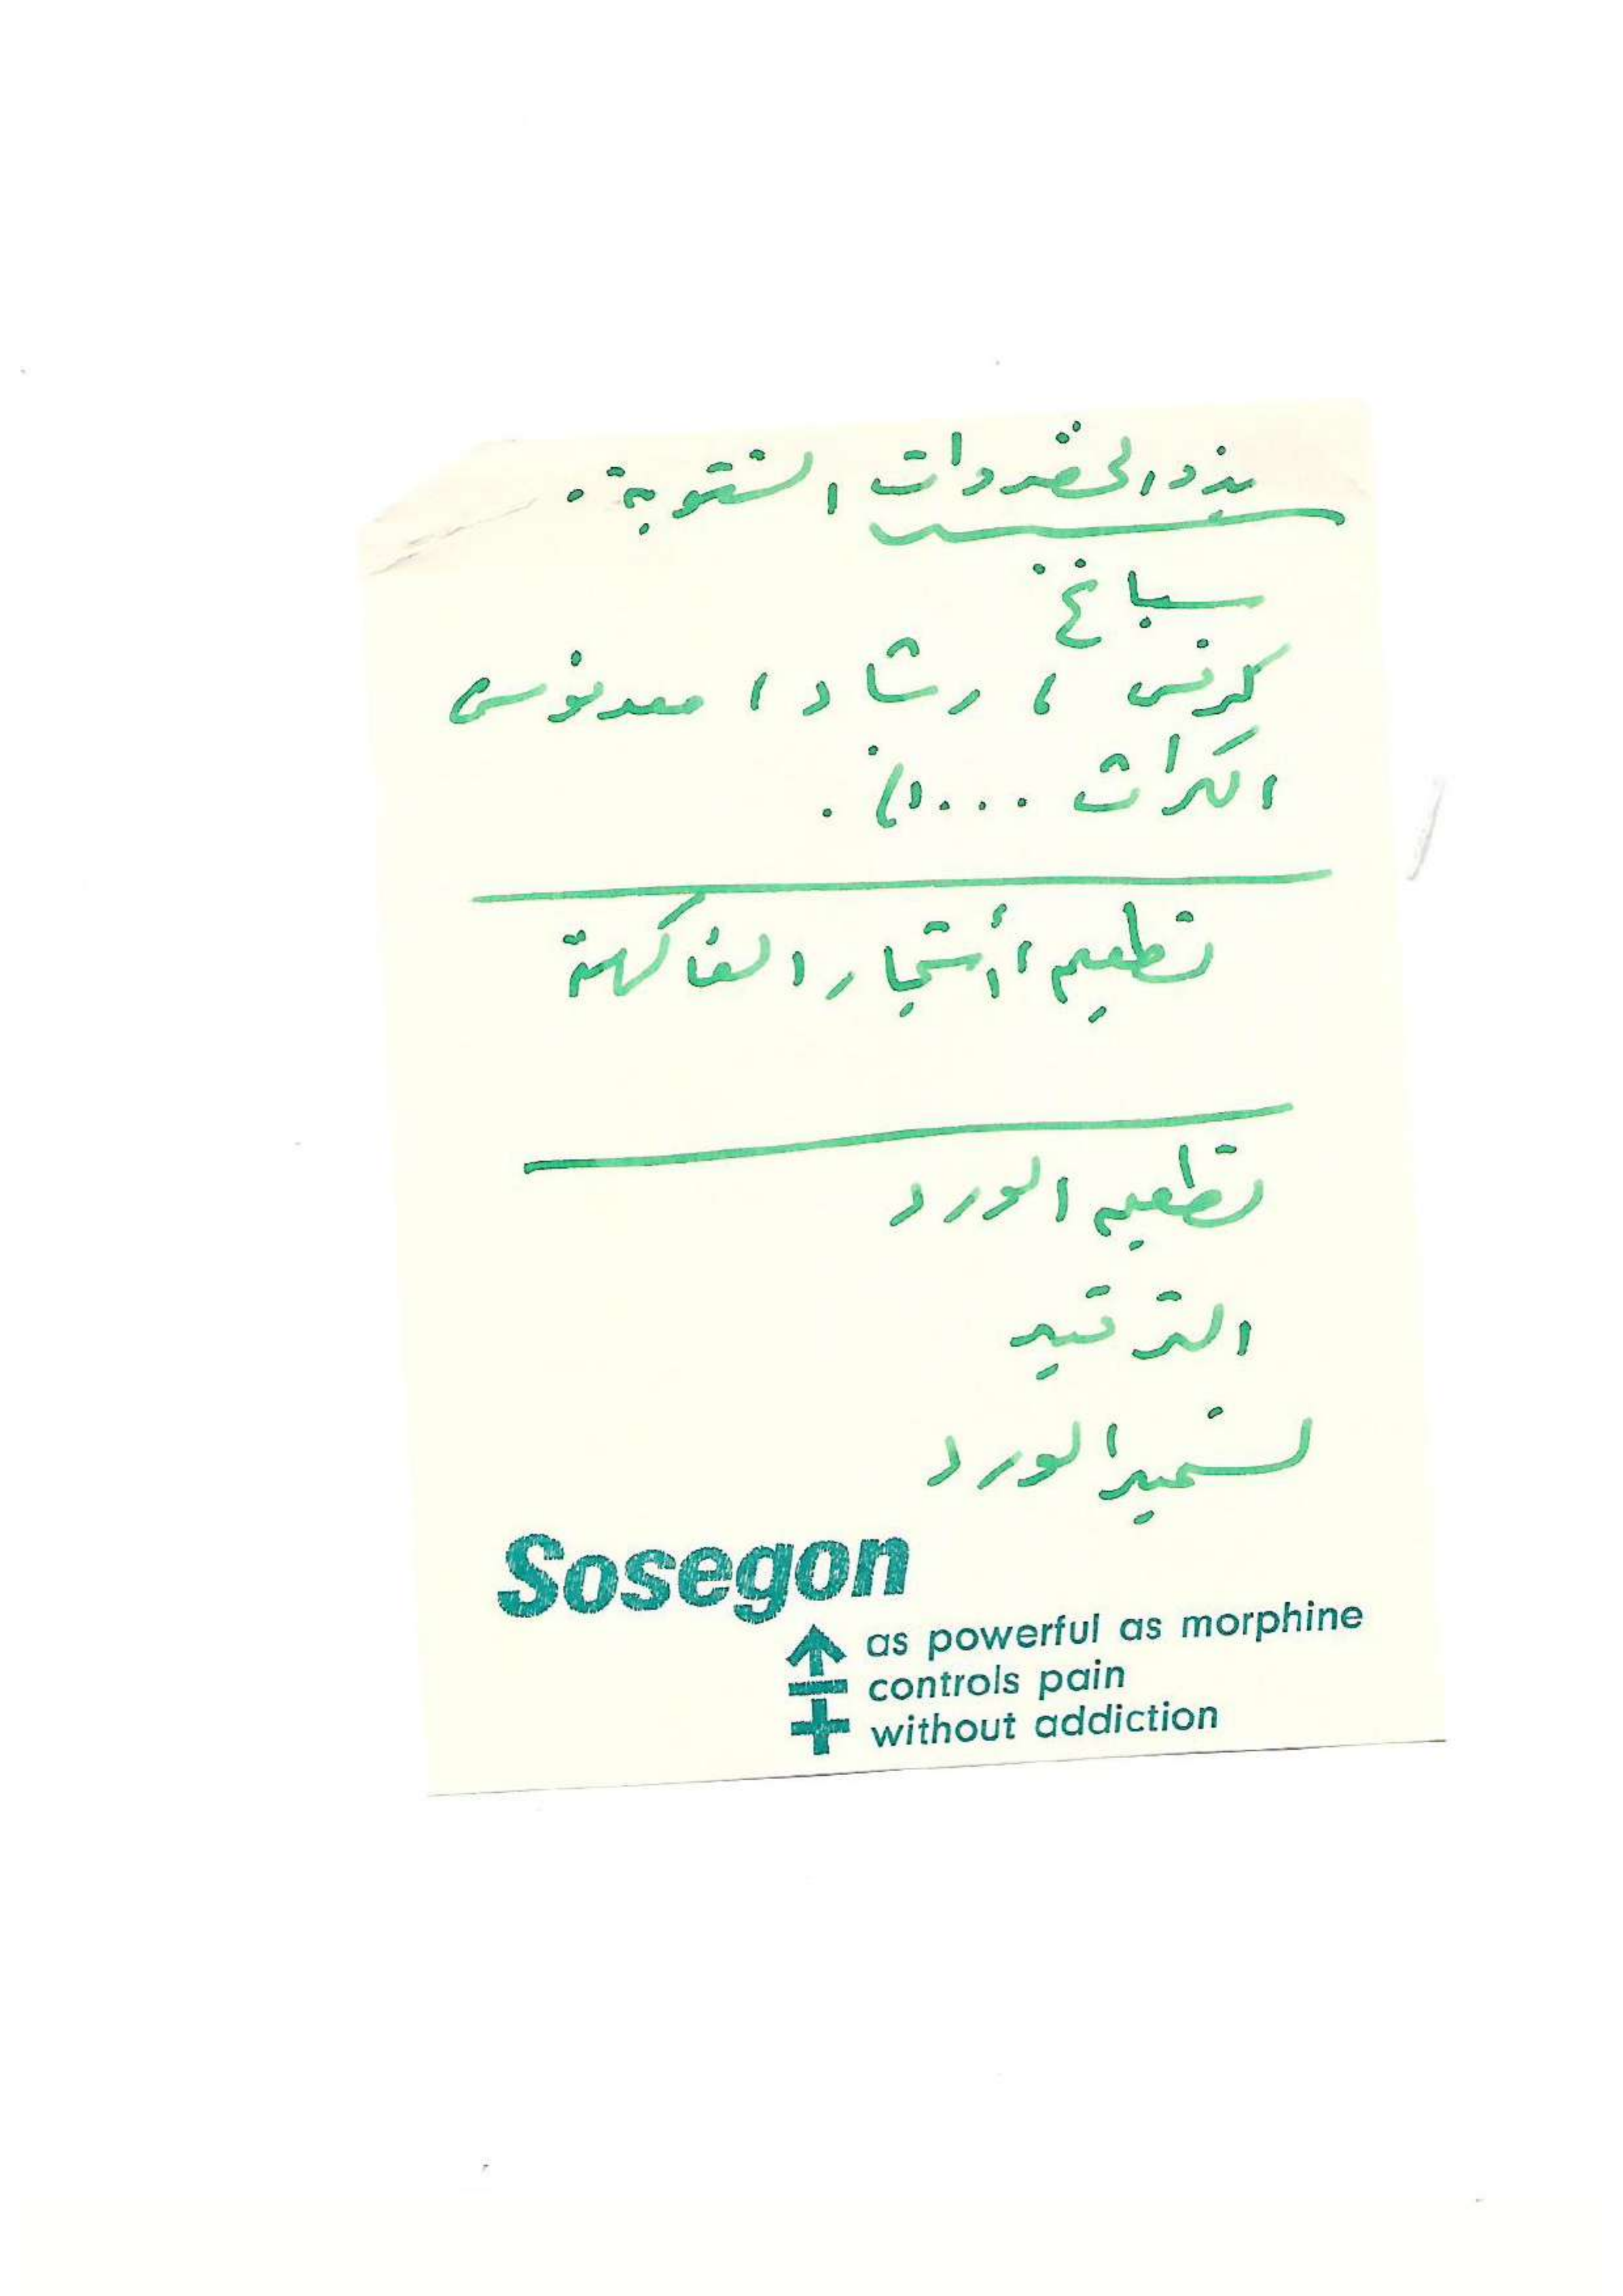 بذر الخضروات الشتوية .
سبانخ
كرفس ، رشاد ، معدنوس
الكراث ... الخ .
تطعيم أشجار الفاكهة
تطعيم الورد
الترقيد
تسميد الورد
Sosegon
as powerful as morphine
controls pain
without addiction